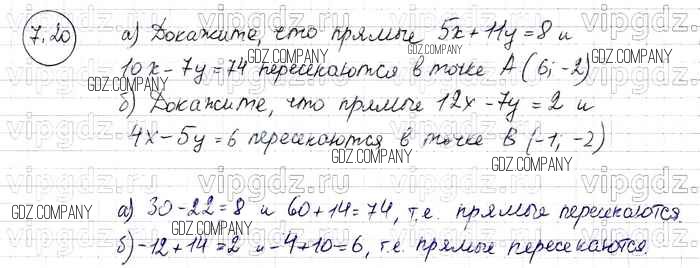 7.20 а) Докажите, что прямые 5x+11y=8 и
10x-7y=74 пересекаются в точке A(6; -2)
б) Докажите, что прямые 12x-7y=2 и
4x-5y=6 пересекаются в точке B(-1; -2)
а) 30-22=8 и 60+14=74, т.е. прямые пересекаются.
б) -12+14=2 и -4+10=6, т.е. прямые пересекаются.